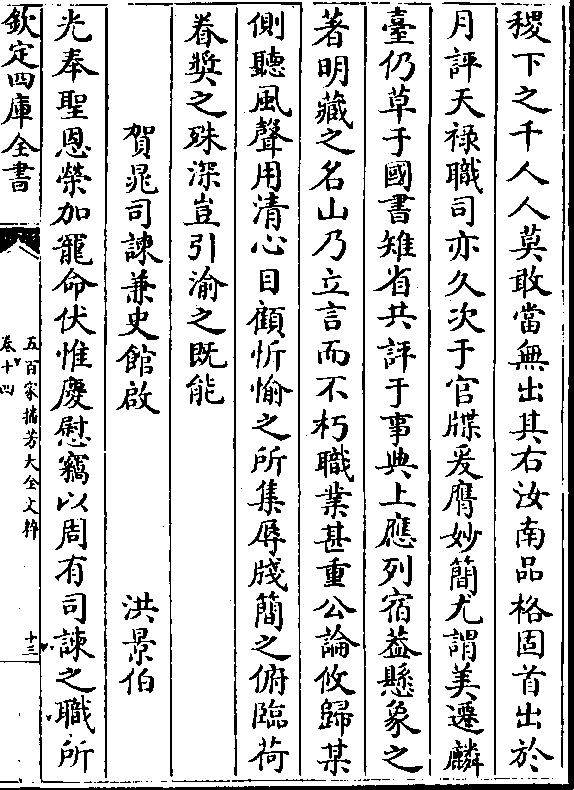 稷下之千人人莫敢當無出其右汝南品格固首出於
月評天祿職司亦久次于官牒爰膺妙簡尤謂美遷麟
臺仍草于國書雉省共評于事典上應列宿葢懸象之
著明藏之名山乃立言而不朽職業甚重公論攸歸某
側聽風聲用清心目顧忻愉之所集辱牋簡之俯臨荷
眷奬之殊深豈引渝之既能
賀晁司諫兼史館啟
洪景伯
光奉聖恩榮加寵命伏惟慶慰竊以周有司諫之職所
欽定四庫全書
五百家播芳大全文粹
卷十四
十三